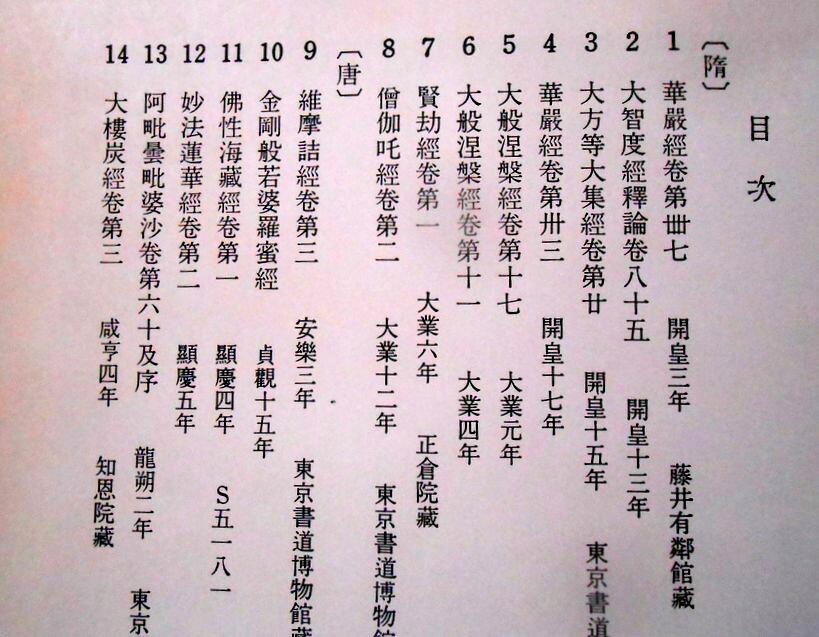 目次
〔隋〕
1 華嚴經卷第卌七 開皇三年 藤井有鄰館藏
2 大智度經釋論卷八十五 開皇十三年
3 大方等大集經卷第廿 開皇十五年 東京書道
4 華嚴經卷第卅三 開皇十七年
5 大般涅槃經卷第十七 大業元年
6 大般涅槃經卷第十一 大業四年
7 賢劫經卷第一 大業六年 正倉院藏
8 僧伽吒經卷第二 大業十二年 東京書道博物館
〔唐〕
9 維摩詰經卷第三 安樂三年 東京書道博物館藏
10 金剛般若婆羅蜜經 貞觀十五年
11 佛性海藏經卷第一 顯慶四年 S五一八一
12 妙法蓮華經卷第二 顯慶五年
13 阿毗曇毗婆沙卷第六十及序 龍朔二年 東京
14 大樓炭經卷第三 咸亨四年 知恩院藏